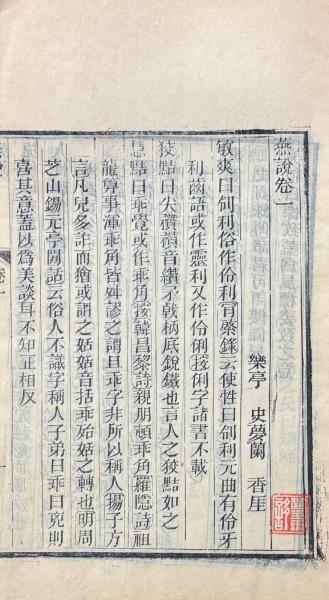 燕說卷一
樂亭 史夢蘭 香厓
敏爽曰刢利俗作伶利肯綮錄云使性曰刢利元曲有伶牙
利齒語或作靈利又作伶俐按俐字諸書不載
狡黠曰尖攢攢音纘矛戟柄底銳鐵也言人之狡黠如之
慧黠曰乖覺或作乖角按韓昌黎詩親朋頓乖角羅隱詩祖
龍算事渾乖角皆舛謬之謂且乖字非所以稱人揚子方
言凡兒多詐而獪或謂之姡姡音括乖殆姡之轉也明周
芝山錫元亭閒話云俗人不識字稱人子弟曰乖曰皃則
喜其意蓋以為美談耳不知正相反